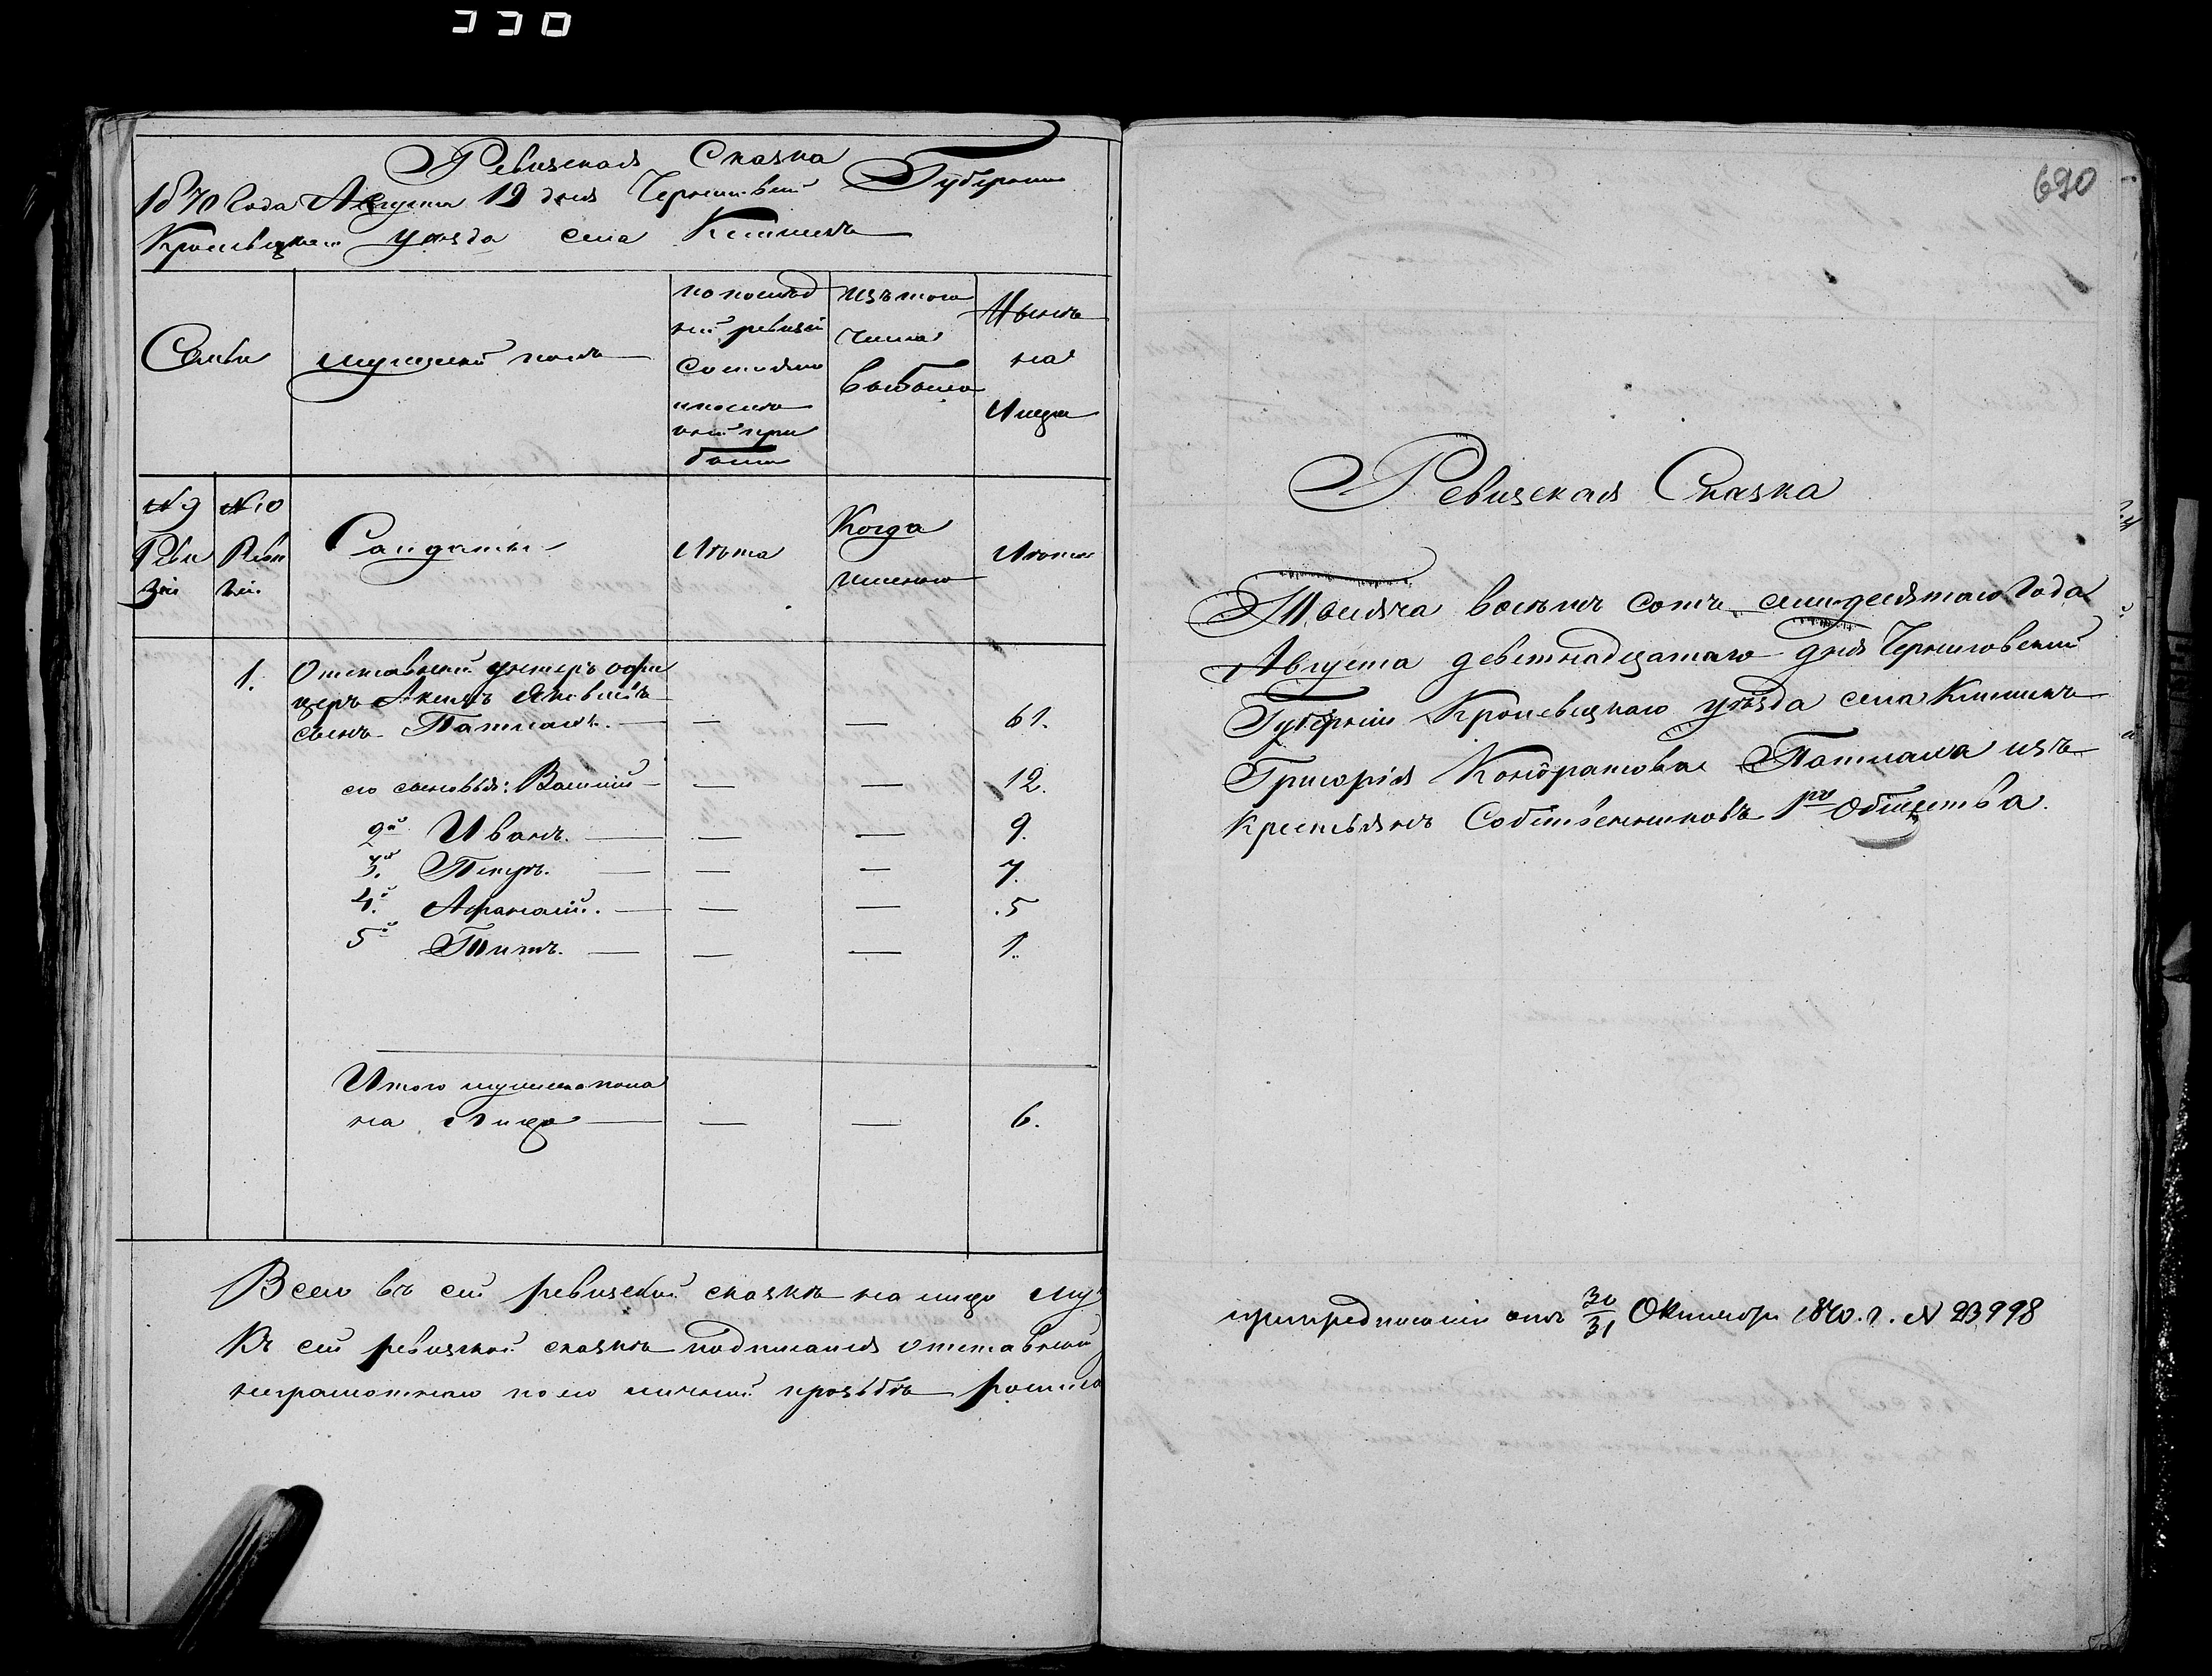 330
Ревизская Сказка
1870 Года Августа 19 дня Черниговский Губернии
Кролевецкаго уѣзда села Клишекъ
Семьи
мужеский полъ
по послѣд
ней ревизіи
состояло
и послѣ
оной при
было
изъ того
числа
выбыло
Нынѣ
на
Лицо
№ 9
Реви
зіи
№ 10
Реви
зіи
Солдаты
Лѣта
Когда
именно
Лѣта
1. Отставный унтеръ офи
церъ Акимъ Яковлевъ
сынъ Патлахъ. — — — 61.
его сыновья: Василий — — — 12.
2й Иванъ. — — — 9.
3й Петръ. — — — 7.
4й Афанасий. — — — 5
5й Титъ. — — — 1.
Итого мужеска пола
на Лицо — — — 6.
Всего въ сей ревизской сказкѣ на лицо му
Къ сей ревизской сказкѣ подписался отставный
неграмотнаго по его личной прозьбѣ росписа
690
Ревизская Сказка
Тысяча восемъ сотъ семидесятаго Года
Августа девятнадцатаго дня Черниговский
Губерніи Кролевецкаго уѣзда села Клишекъ
Григорія Кондратова Патлаха изъ
Крестьянъ Собственниковъ 1го Общества.
при предписаніи отъ 30/31 Октября 1870. г. № 23998